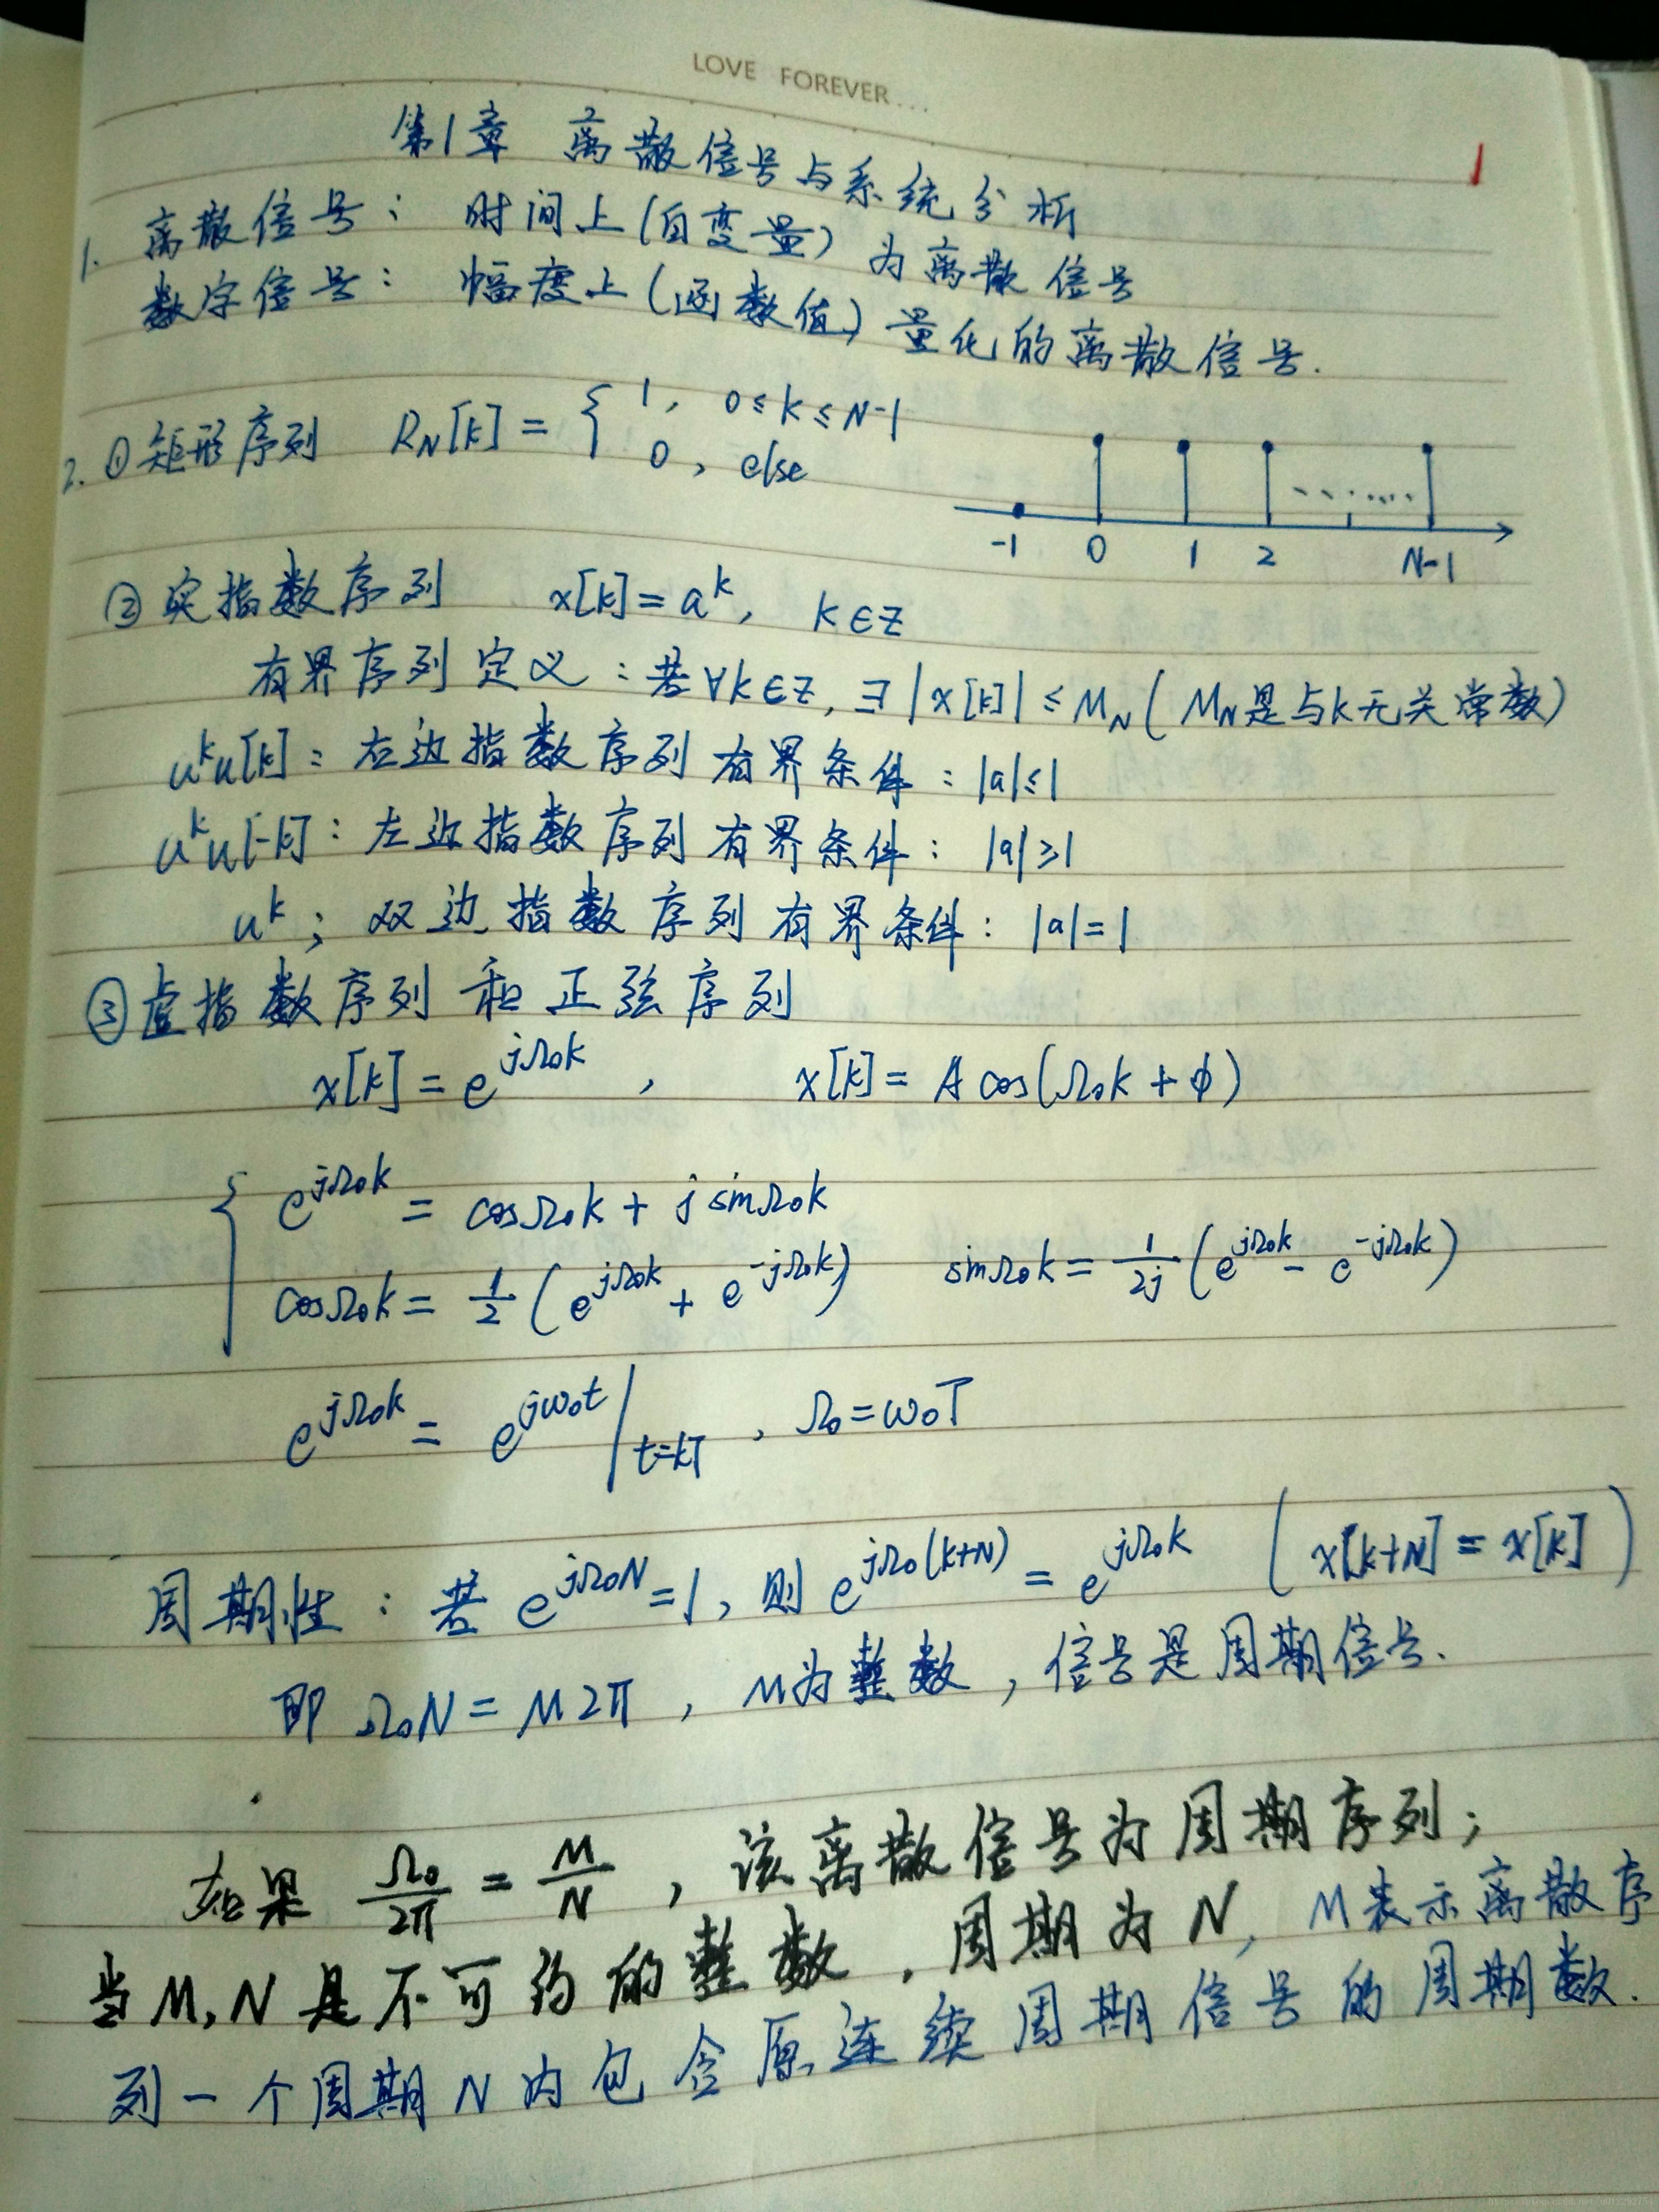 LOVE FOREVER...
1
第1章 离散信号与系统分析
1. 离散信号: 时间上(自变量)为离散信号
数字信号: 幅度上(函数值)量化的离散信号.
2. ①矩形序列 R_N[k] = { 1, 0≤k≤N-1
0, else
-1 0 1 2 ...... N-1
②实指数序列 x[k]=a^k, k∈Z
有界序列定义:若∀k∈Z,∃|x[k]|≤M_N(M_N是与k无关常数)
a^k u[k]: 右边指数序列 有界条件: |a|≤1
a^k u[-k]: 左边指数序列 有界条件: |a|≥1
a^k; 双边指数序列有界条件: |a|=1
③虚指数序列和正弦序列
x[k]=e^{jΩ₀k}, x[k]=A cos(Ω₀k+ϕ)
{ e^{jΩ₀k} = cosΩ₀k + j sinΩ₀k
cosΩ₀k = 1/2 (e^{jΩ₀k} + e^{-jΩ₀k}) sinΩ₀k = 1/2j (e^{jΩ₀k} - e^{-jΩ₀k})
e^{jΩ₀k} = e^{jω₀t}|_{t=kT}, Ω₀=ω₀T
周期性: 若 e^{jΩ₀N}=1, 则 e^{jΩ₀(k+N)} = e^{jΩ₀k} (x[k+N]=x[k])
即 Ω₀N = M2π, M为整数, 信号是周期信号.
如果 Ω₀/2π = M/N, 该离散信号为周期序列;
当M,N是不可约的整数, 周期为N, M表示离散序
列一个周期N内包含原连续周期信号的周期数.